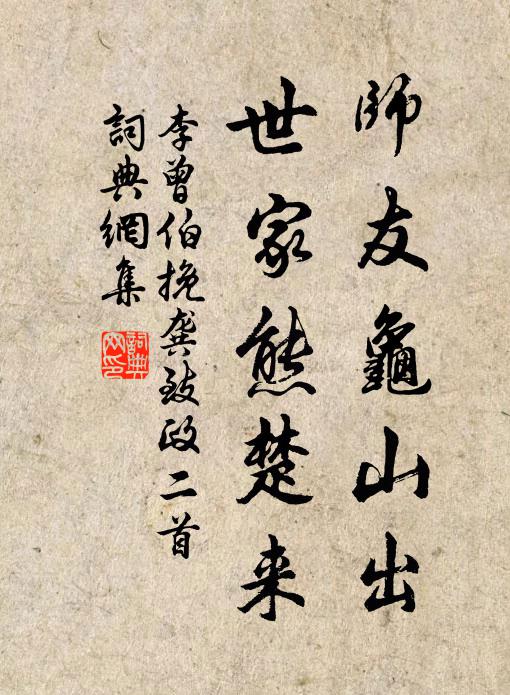 師友龜山出
世家熊楚来
李曾伯挽龔致政二首
詞典網集
詞典
网印